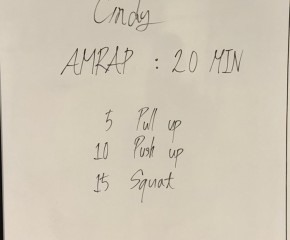 Cindy
AMRAP : 20 MIN
5 Pull up
10 Push up
15 Squat